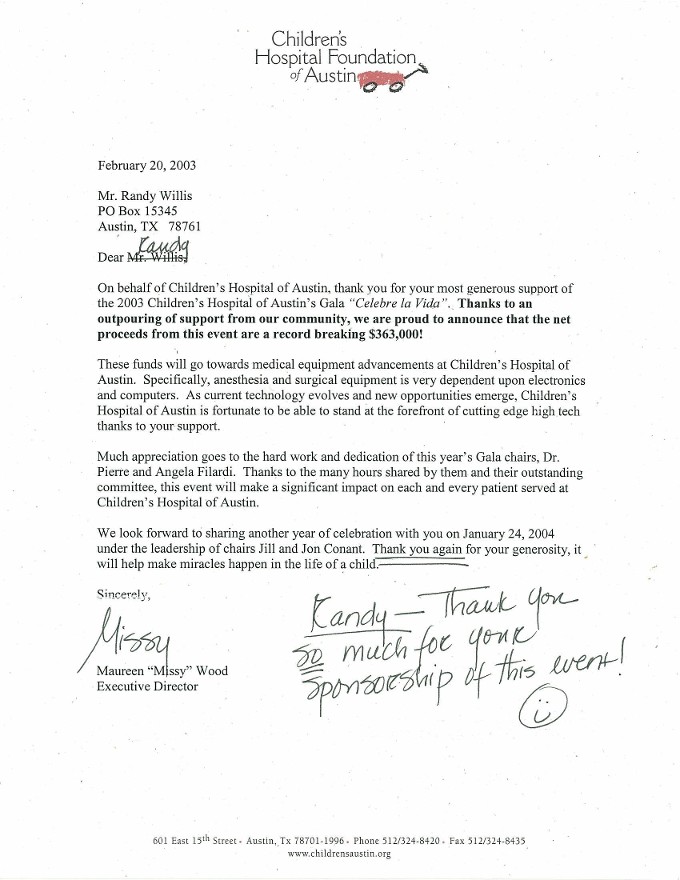 Children's
Hospital Foundation
of Austin
February 20, 2003
Mr. Randy Willis
PO Box 15345
Austin, TX 78761
Randy
Dear Mr. Willis,
On behalf of Children's Hospital of Austin, thank you for your most generous support of
the 2003 Children's Hospital of Austin's Gala "Celebre la Vida". Thanks to an
outpouring of support from our community, we are proud to announce that the net
proceeds from this event are a record breaking $363,000!
These funds will go towards medical equipment advancements at Children's Hospital of
Austin. Specifically, anesthesia and surgical equipment is very dependent upon electronics
and computers. As current technology evolves and new opportunities emerge, Children's
Hospital of Austin is fortunate to be able to stand at the forefront of cutting edge high tech
thanks to your support.
Much appreciation goes to the hard work and dedication of this year's Gala chairs, Dr.
Pierre and Angela Filardi. Thanks to the many hours shared by them and their outstanding
committee, this event will make a significant impact on each and every patient served at
Children's Hospital of Austin.
We look forward to sharing another year of celebration with you on January 24, 2004
under the leadership of chairs Jill and Jon Conant. Thank you again for your generosity, it
will help make miracles happen in the life of a child.
Sincerely,
Missy
Maureen "Missy" Wood
Executive Director
Randy — Thank you
so much for your
sponsorship of this event!
601 East 15th Street - Austin, Tx 78701-1996 - Phone 512/324-8420 - Fax 512/324-8435
www.childrensaustin.org